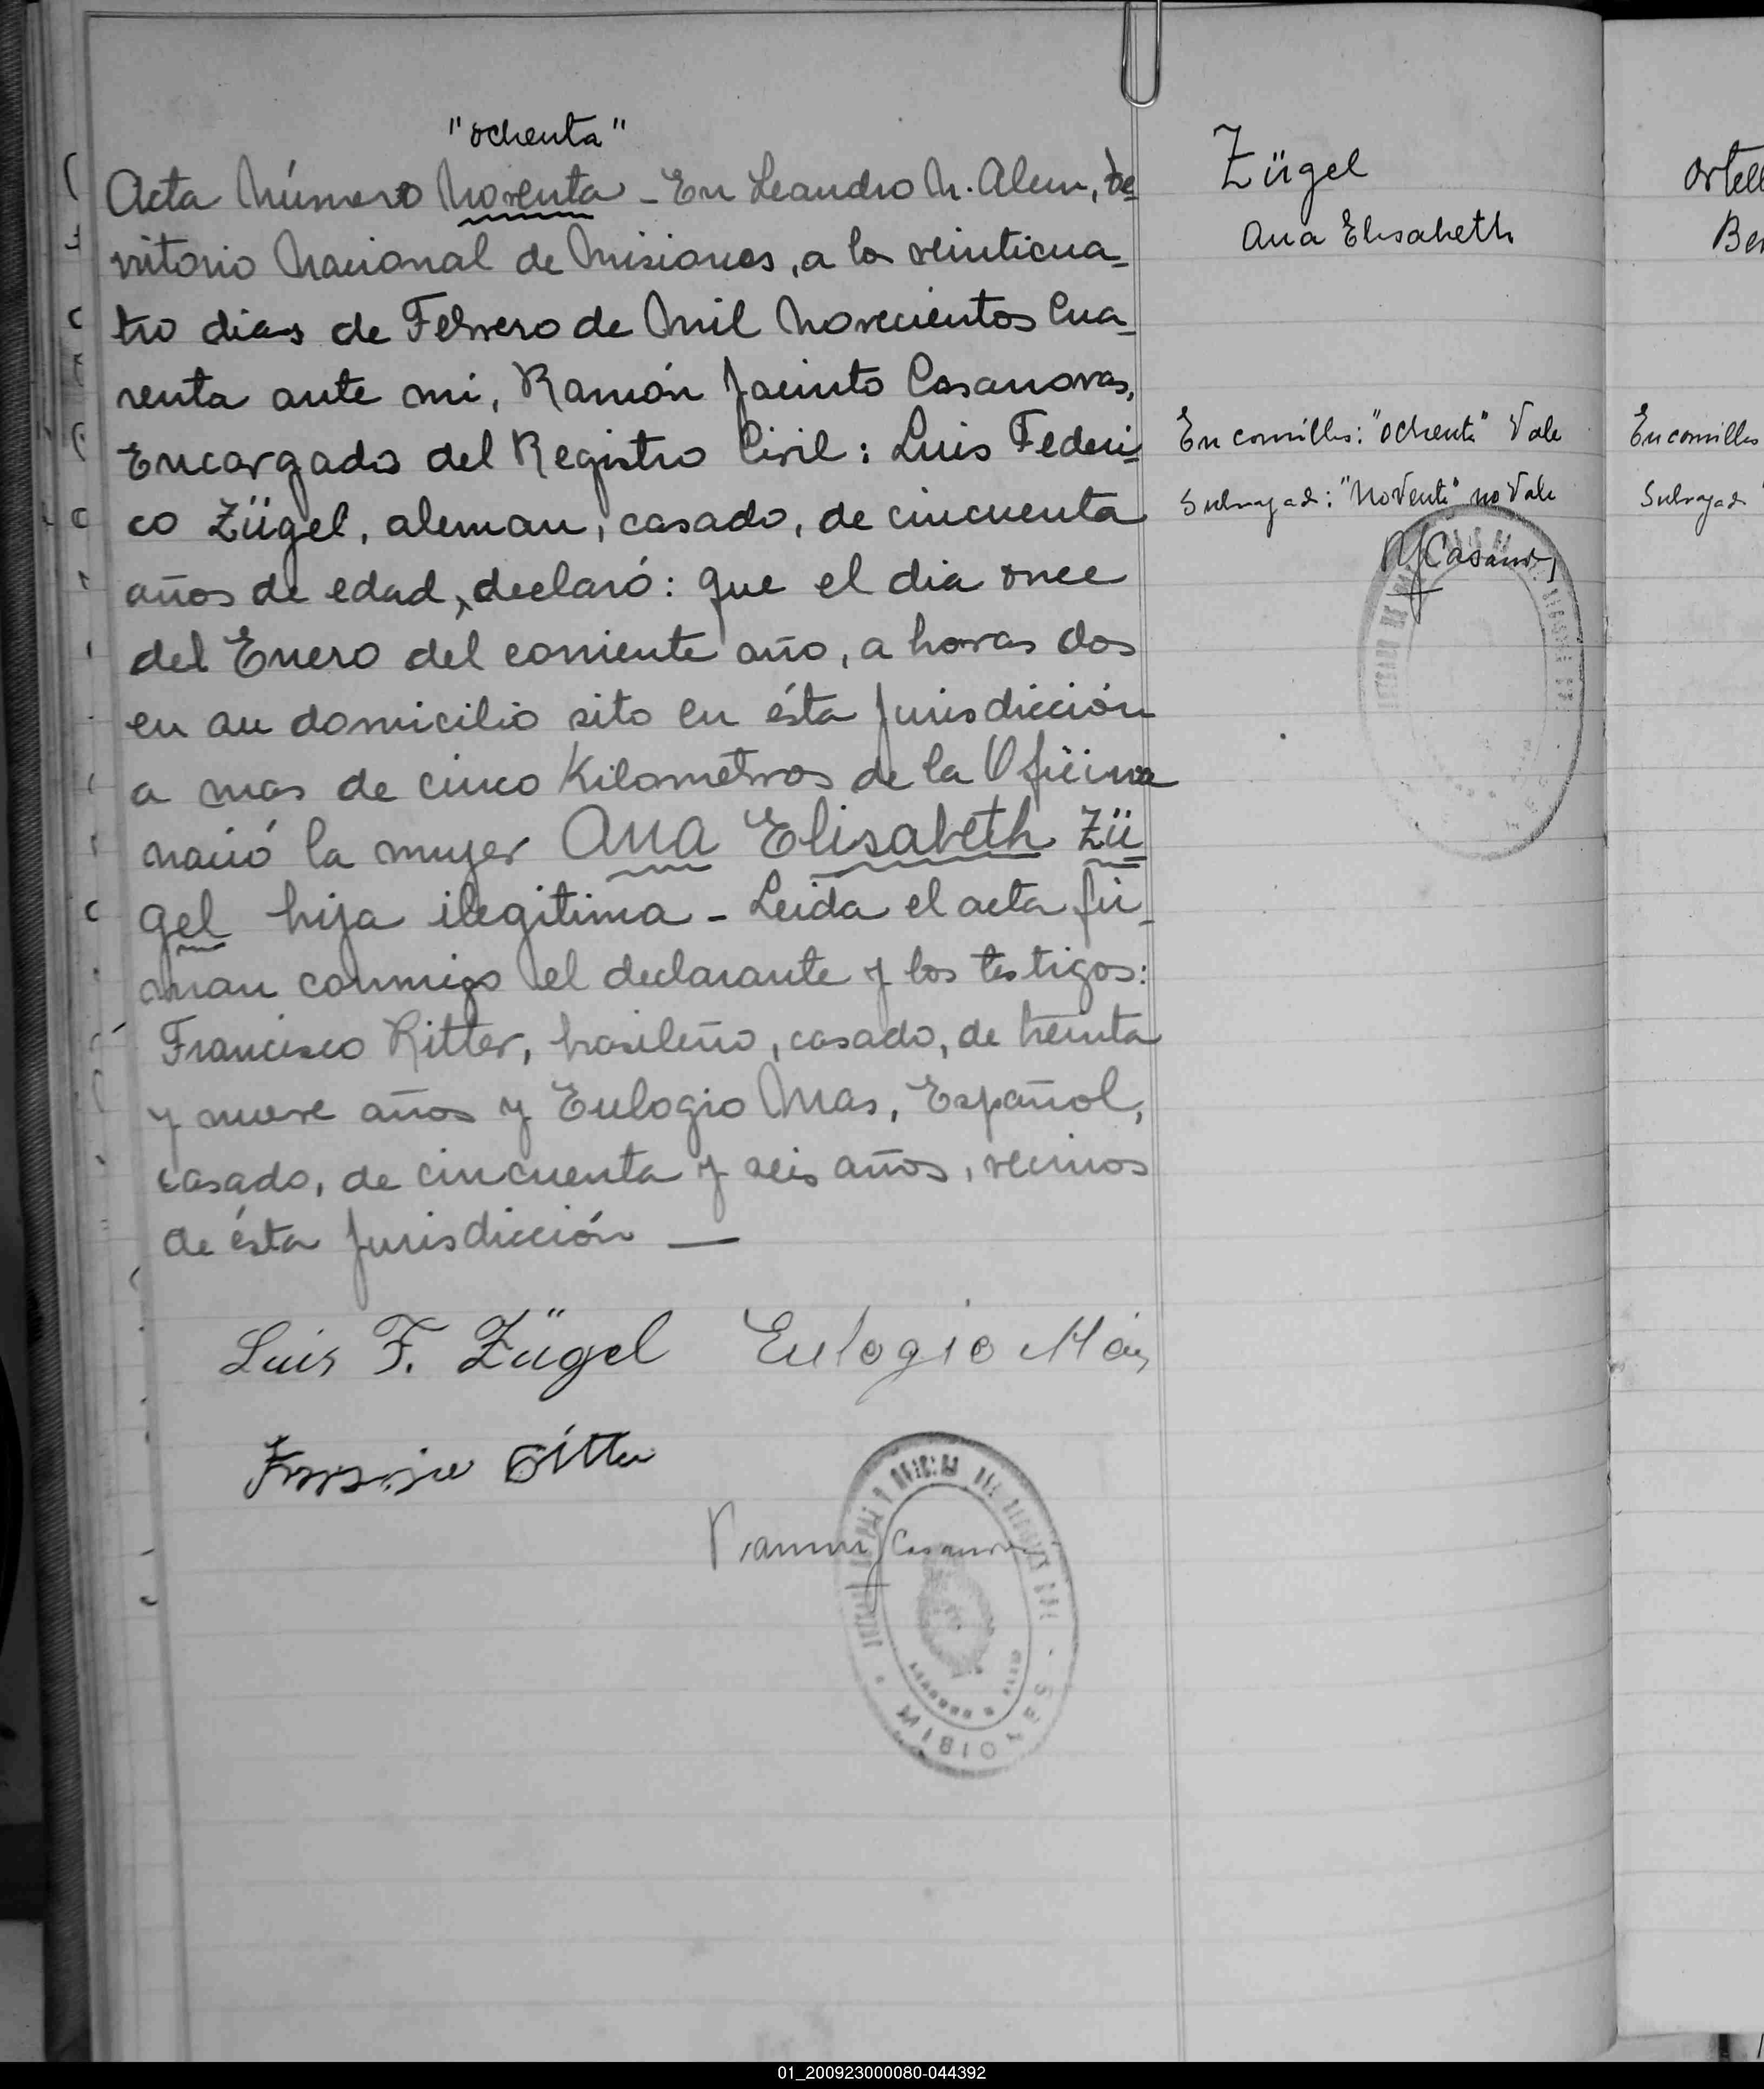 "ochenta"
Acta Número Noventa - En Leandro N. Alem, Te
rritorio Nacional de Misiones, a los veinticua-
tro dias de Febrero de Mil Novecientos Cua-
renta ante mi, Ramón Jacinto Casanovas,
Encargado del Registro Civil: Luis Federi-
co Zügel, aleman, casado, de cincuenta
años de edad, declaró: Que el dia once
del Enero del corriente año, a horas dos
en su domicilio sito en ésta Jurisdicción
a mas de cinco Kilometros de la Oficina
nació la mujer Ana Elisabeth Zü
gel hija ilegitima - Leida el acta fir-
man conmigo el declarante y los testigos:
Francisco Ritter, brasileño, casado, de treinta
y nueve años y Eulogio Mas, Español,
casado, de cincuenta y seis años, vecinos
de ésta Jurisdicción —
Luis F. Zügel Eulogio Más
Ritter
Ramon J Casanovas
MISIONES
Zügel
Ana Elisabeth
En comillas: "ochenta" Vale
Subrayado: "Noventa" no Vale
RJCasanovas
Ortell
Ber
En comillas
Subrayad
01_200923000080-044392